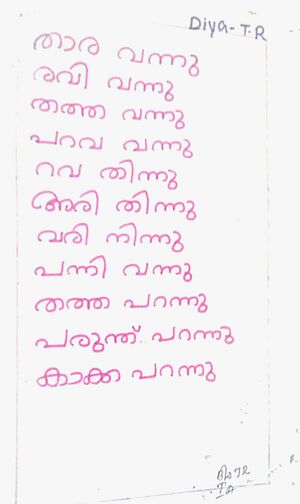 Diya-T.R
താര വന്നു
രവി വന്നു
തത്ത വന്നു
പറവ വന്നു
റവ തിന്നു
അരി തിന്നു
വരി നിന്നു
പന്നി വന്നു
തത്ത പറന്നു
പരുന്ത് പറന്നു
കാക്ക പറന്നു